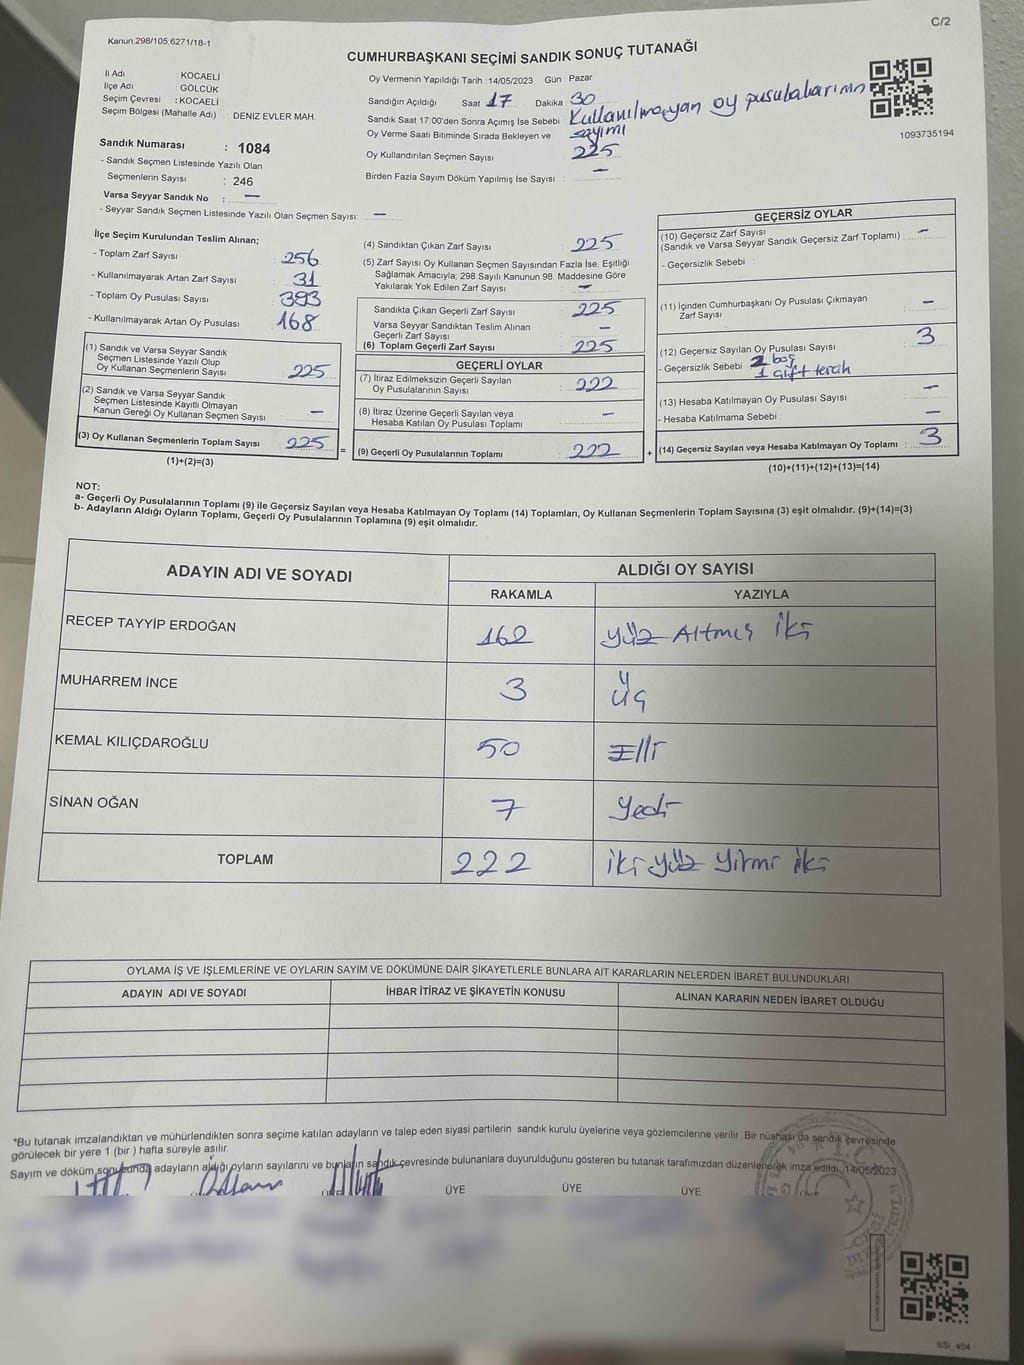 C/2
Kanun 298/105,6271/18-1
CUMHURBAŞKANI SEÇİMİ SANDIK SONUÇ TUTANAĞI
İl Adı : KOCAELİ
İlçe Adı : GÖLCÜK
Seçim Çevresi : KOCAELİ
Seçim Bölgesi (Mahalle Adı) : DENİZ EVLER MAH.
Oy Vermenin Yapıldığı Tarih :14/05/2023 Gün Pazar
Sandığın Açıldığı Saat 17 Dakika 30
Sandık Saat 17:00'den Sonra Açımış İse Sebebi Kullanılmayan oy pusulalarının sayımı
Oy Verme Saati Bitiminde Sırada Bekleyen ve
Oy Kullandırılan Seçmen Sayısı : 225
Birden Fazla Sayım Döküm Yapılmış İse Sayısı : —
1093735194
Sandık Numarası : 1084
- Sandık Seçmen Listesinde Yazılı Olan
Seçmenlerin Sayısı : 246
Varsa Seyyar Sandık No : —
- Seyyar Sandık Seçmen Listesinde Yazılı Olan Seçmen Sayısı: —
İlçe Seçim Kurulundan Teslim Alınan;
- Toplam Zarf Sayısı : 256
- Kullanılmayarak Artan Zarf Sayısı : 31
- Toplam Oy Pusulası Sayısı : 393
- Kullanılmayarak Artan Oy Pusulası : 168
(1) Sandık ve Varsa Seyyar Sandık
Seçmen Listesinde Yazılı Olup
Oy Kullanan Seçmenlerin Sayısı : 225
(2) Sandık ve Varsa Seyyar Sandık
Seçmen Listesinde Kayıtlı Olmayan
Kanun Gereği Oy Kullanan Seçmen Sayısı : —
(3) Oy Kullanan Seçmenlerin Toplam Sayısı : 225 =
(1)+(2)=(3)
(4) Sandıktan Çıkan Zarf Sayısı : 225
(5) Zarf Sayısı Oy Kullanan Seçmen Sayısından Fazla İse, Eşitliği
Sağlamak Amacıyla; 298 Sayılı Kanunun 98. Maddesine Göre
Yakılarak Yok Edilen Zarf Sayısı : —
Sandıkta Çıkan Geçerli Zarf Sayısı : 225
Varsa Seyyar Sandıktan Teslim Alınan
Geçerli Zarf Sayısı : —
(6) Toplam Geçerli Zarf Sayısı : 225
GEÇERLİ OYLAR
(7) İtiraz Edilmeksizin Geçerli Sayılan
Oy Pusulalarının Sayısı : 222
(8) İtiraz Üzerine Geçerli Sayılan veya
Hesaba Katılan Oy Pusulası Toplamı : —
(9) Geçerli Oy Pusulalarının Toplamı : 222 +
GEÇERSİZ OYLAR
(10) Geçersiz Zarf Sayısı
(Sandık ve Varsa Seyyar Sandık Geçersiz Zarf Toplamı) : —
- Geçersizlik Sebebi :
(11) İçinden Cumhurbaşkanı Oy Pusulası Çıkmayan
Zarf Sayısı : —
(12) Geçersiz Sayılan Oy Pusulası Sayısı : 3
- Geçersizlik Sebebi : 2 boş
1 çift tercih
(13) Hesaba Katılmayan Oy Pusulası Sayısı : —
- Hesaba Katılmama Sebebi : —
(14) Geçersiz Sayılan veya Hesaba Katılmayan Oy Toplamı : 3
(10)+(11)+(12)+(13)=(14)
NOT:
a- Geçerli Oy Pusulalarının Toplamı (9) ile Geçersiz Sayılan veya Hesaba Katılmayan Oy Toplamı (14) Toplamları, Oy Kullanan Seçmenlerin Toplam Sayısına (3) eşit olmalıdır. (9)+(14)=(3)
b- Adayların Aldığı Oyların Toplamı, Geçerli Oy Pusulalarının Toplamına (9) eşit olmalıdır.
ADAYIN ADI VE SOYADI ALDIĞI OY SAYISI
RAKAMLA YAZIYLA
RECEP TAYYİP ERDOĞAN 162 Yüz Altmış iki
MUHARREM İNCE 3 Üç
KEMAL KILIÇDAROĞLU 50 Elli
SİNAN OĞAN 7 Yedi
TOPLAM 222 iki yüz yirmi iki
OYLAMA İŞ VE İŞLEMLERİNE VE OYLARIN SAYIM VE DÖKÜMÜNE DAİR ŞİKAYETLERLE BUNLARA AİT KARARLARIN NELERDEN İBARET BULUNDUKLARI
ADAYIN ADI VE SOYADI İHBAR İTİRAZ VE ŞİKAYETİN KONUSU ALINAN KARARIN NEDEN İBARET OLDUĞU
*Bu tutanak imzalandıktan ve mühürlendikten sonra seçime katılan adayların ve talep eden siyasi partilerin sandık kurulu üyelerine veya gözlemcilerine verilir. Bir nüshası da sandık çevresinde
görülecek bir yere 1 (bir ) hafta süreyle asılır.
Sayım ve döküm sonucunda adayların aldığı oyların sayılarını ve bunların sandık çevresinde bulunanlara duyurulduğunu gösteren bu tutanak tarafımızdan düzenlenerek imza edildi. 14/05/2023
ÜYE ÜYE ÜYE ÜYE
T.C.
SSİ_404